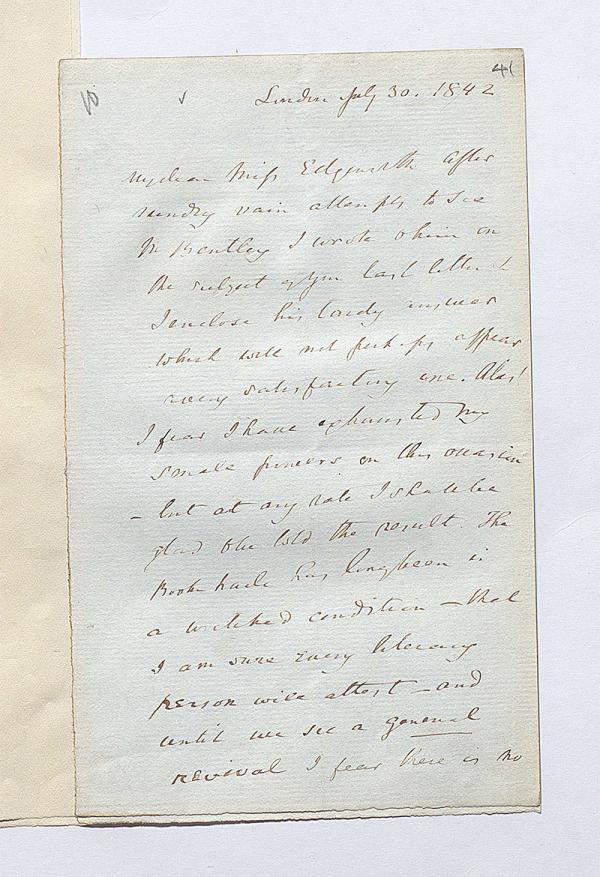 41
London July 30. 1842
My dear Miss Edgeworth After
sundry vain attempts to see
Mr Bentley I wrote to him on
the subject of your last letter &
I enclose his tardy answer
which will not perhaps appear
a very satisfactory one. Alas!
I fear I have exhausted my
small powers on this occasion
- but at any rate I shall be
glad to be told the result. The
Book trade has long been in
a wretched condition - that
I am sure every literary
person will attest - and
until we see a general
revival I fear there is no